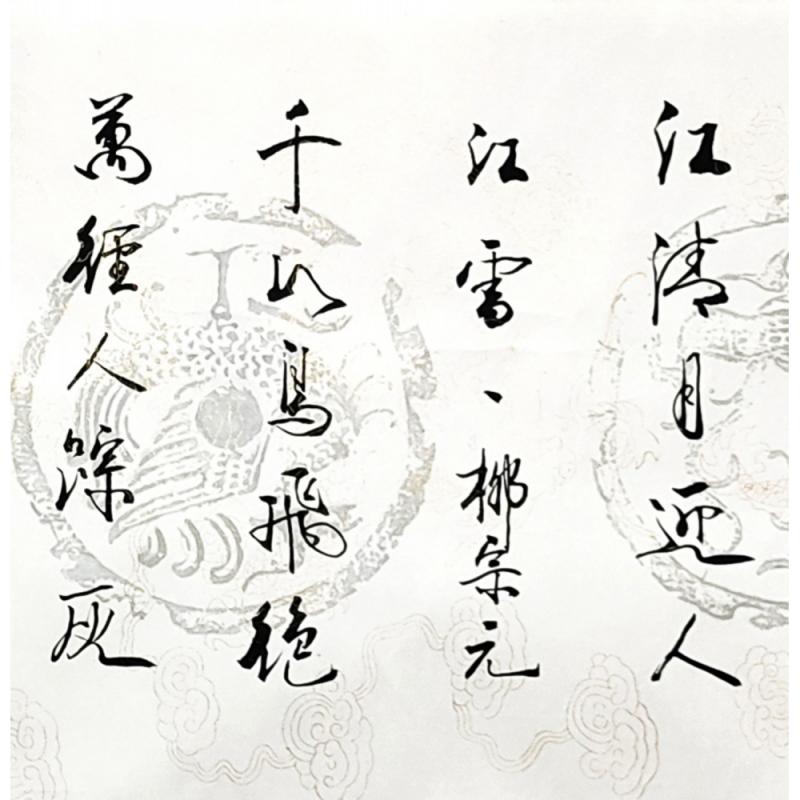 江清月迎人
江雪、柳宗元
千山鳥飛絶
萬徑人踪